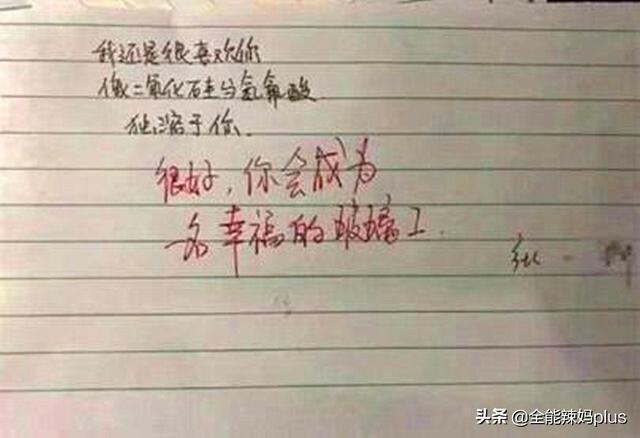 我还是很喜欢你
像二氧化硅与氢氟酸
独溶于你.
很好，你会成为
一名幸福的玻璃工.
头条 @全能辣妈plus